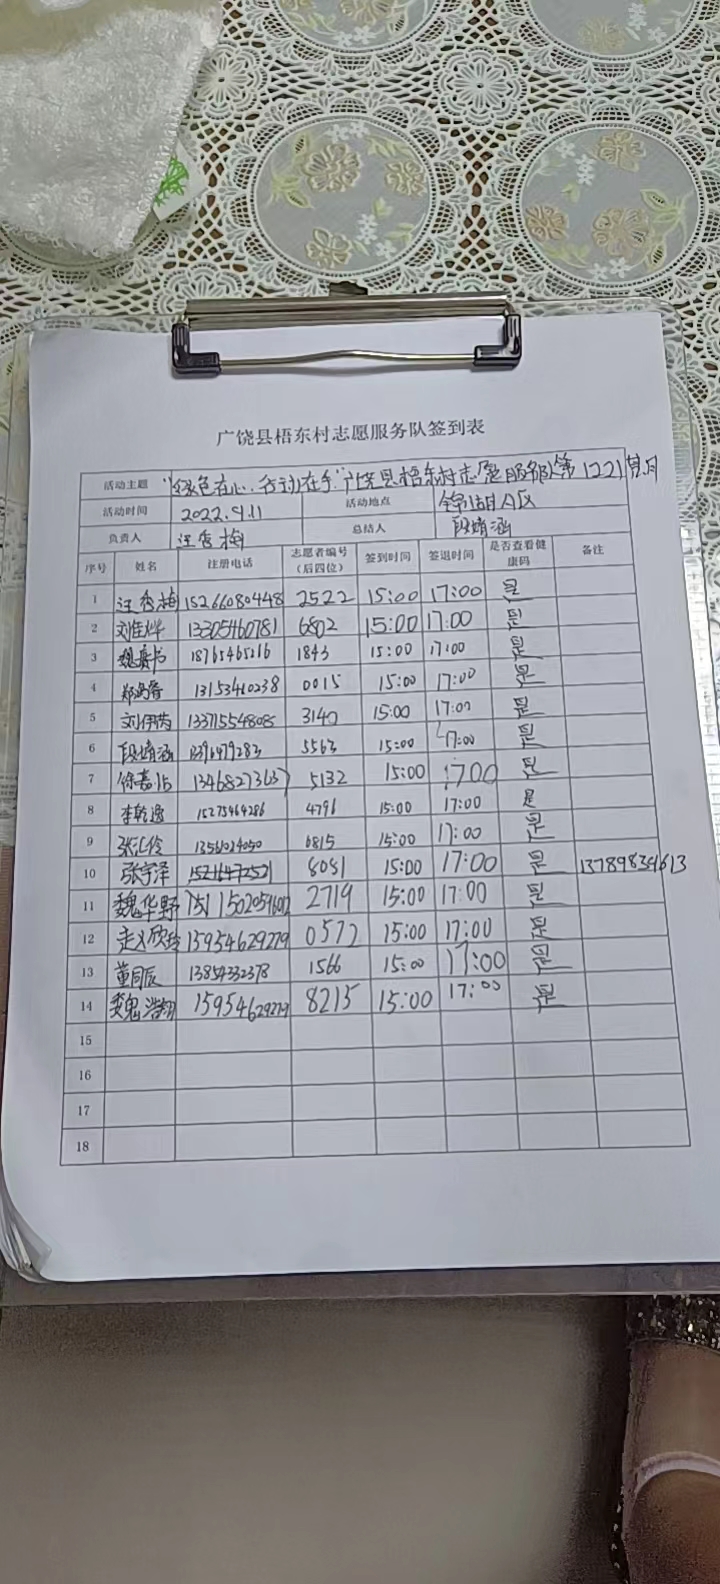 广饶县梧东村志愿服务队签到表
活动主题 "绿色在心,行动在手"广饶县梧东村志愿服务队第1221期活
活动时间 2022.9.11 活动地点 锦湖A区
负责人 汪秀梅 总结人 段婧涵
序号 姓名 注册电话 志愿者编号(后四位) 签到时间 签退时间 是否查看健康码 备注
1 汪秀梅 15266080448 2522 15:00 17:00 是
2 刘佳烨 13305460781 6802 15:00 17:00 是
3 18765465216 1843 15:00 17:00 是
4 13153410238 0015 15:00 17:00 是
5 刘伊芮 13371554808 3140 15:00 17:00 是
6 段婧涵 5563 15:00 17:00 是
7 徐嘉 13468273637 5132 15:00 17:00 是
8 李乾逸 15275464286 4796 15:00 17:00 是
9 13561024050 0815 15:00 17:00 是
10 张宇泽 15216472521 6051 15:00 17:00 是 13789834613
11 魏华野 2719 15:00 17:00 是
12 赵欣玲 15954629279 0572 15:00 17:00 是
13 董同辰 13854332378 1566 15:00 17:00 是
14 魏浩翔 15954629279 8215 15:00 17:00 是
15
16
17
18